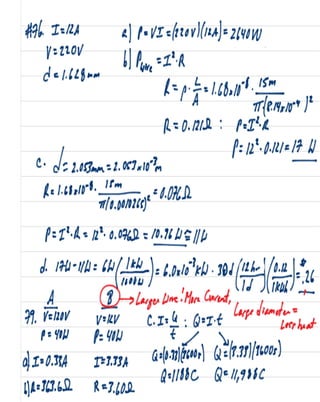 #76. I=12A
V=220V
d=1.628mm
a) P=VI=(220V)(12A)=2640W
b) Pwire=I²·R
R=ρ·L/A=1.68x10⁻⁸·15m/π(8.14x10⁻⁴)²
R=0.121Ω : P=I²·R
P=12²·0.121=17W
c. d=2.053mm=2.053x10⁻³m
R=1.68x10⁻⁸·15m/π(0.0010265)²=0.076Ω
P=I²·R=12²·0.076Ω=10.96W≅11W
d. 17W-11W=6W(1kW/1000W)=6.0x10⁻³kW·30d(12hr/1d)(0.12/1kWh)=$.26
A
B → Larger Wire! More Current,
Large diameter=
Less heat
79. V=120V V=12V C. I=Q/t : Q=I·t
P=40W P=40W
a) I=0.33A I=3.33A Q=(0.33)(3600s) Q=(3.33)(3600s)
b) R=363.6Ω R=3.60Ω Q=1188C Q=11,988C